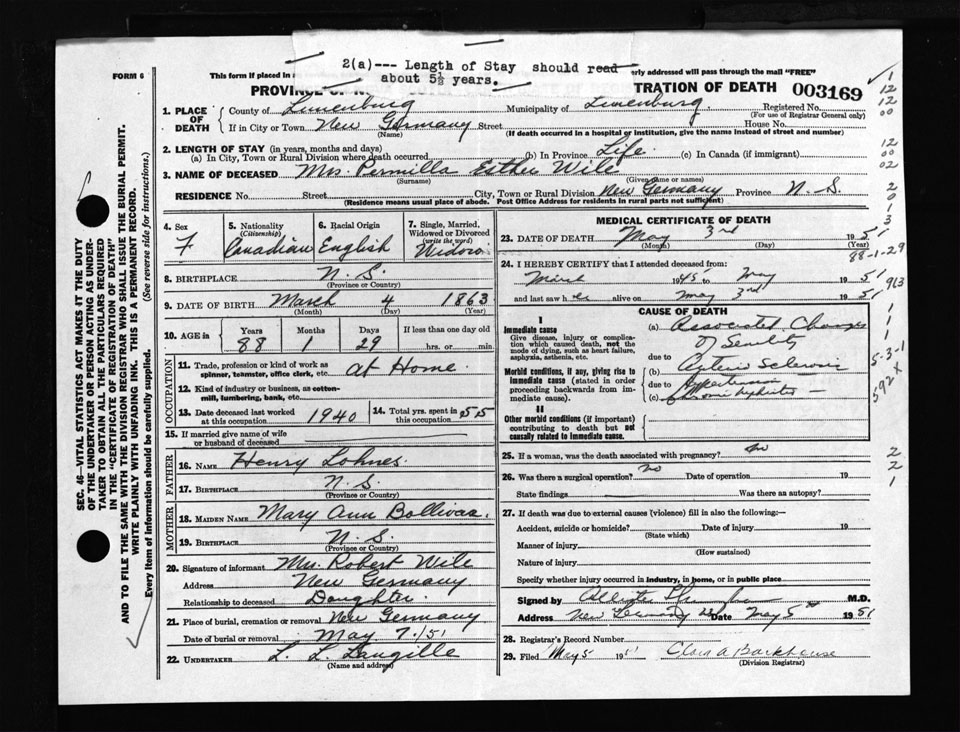 2(a)--- Length of Stay should read
about 5½ years.
FORM 6
This form if placed in
erly addressed will pass through the mail "FREE"
PROVINCE OF N
TRATION OF DEATH 003169
1. PLACE OF DEATH
County of Lunenburg Municipality of Lunenburg Registered No.
(For use of Registrar General only)
If in City or Town New Germany Street House No.
(Name) (If death occurred in a hospital or institution, give the name instead of street and number)
2. LENGTH OF STAY (in years, months and days)
(a) In City, Town or Rural Division where death occurred (b) In Province Life. (c) In Canada (if immigrant)
3. NAME OF DECEASED Mrs. Permilla Esther Wile
(Surname) (Given name or names)
RESIDENCE No. Street City, Town or Rural Division New Germany Province N. S.
(Residence means usual place of abode. Post Office Address for residents in rural parts not sufficient)
4. Sex
F
5. Nationality
(Citizenship)
Canadian
6. Racial Origin
English
7. Single, Married, Widowed or Divorced
(write the word)
Widow
8. BIRTHPLACE N. S.
(Province or Country)
9. DATE OF BIRTH March 4 1863
(Month) (Day) (Year)
10. AGE in Years Months Days If less than one day old
88 1 29 hrs. or min.
OCCUPATION
11. Trade, profession or kind of work as spinner, teamster, office clerk, etc. At Home.
12. Kind of industry or business, as cotton-mill, lumbering, bank, etc.
13. Date deceased last worked at this occupation 1940
14. Total yrs. spent in 55
15. If married give name of wife or husband of deceased
FATHER
16. NAME Henry Lohnes.
17. BIRTHPLACE N. S.
(Province or Country)
MOTHER
18. MAIDEN NAME Mary Ann
19. BIRTHPLACE N. S.
(Province or Country)
20. Signature of informant Mrs. Robert Wile
Address New Germany
Relationship to deceased Daughter.
21. Place of burial, cremation or removal New Germany
Date of burial or removal May 7/51
22. UNDERTAKER L. L. Langille
(Name and address)
MEDICAL CERTIFICATE OF DEATH
23. DATE OF DEATH May 3rd 1951
(Month) (Day) (Year)
88-1-29
24. I HEREBY CERTIFY that I attended deceased from:
March 1945 May 1951
and last saw her alive on May 3rd 1951
CAUSE OF DEATH
I
Immediate cause
Give disease, injury or complication which caused death, not the mode of dying, such as heart failure, asphyxia, asthenia, etc.
Morbid conditions, if any, giving rise to immediate cause (stated in order proceeding backwards from immediate cause).
II
Other morbid conditions (if important) contributing to death but not causally related to immediate cause.
(a) Associated Changes
of Senility
due to
(b) Arterio Sclerosis
due to Hypertension
(c) Chronic Nephritis
5-3-1
592 x
25. If a woman, was the death associated with pregnancy? no
26. Was there a surgical operation? no Date of operation 19
State findings Was there an autopsy?
27. If death was due to external causes (violence) fill in also the following:—
Accident, suicide or homicide? Date of injury 19
(State which)
Manner of injury
(How sustained)
Nature of injury
Specify whether injury occurred in industry, in home, or in public place
Signed by M.D.
Address New Germany Date May 5th 1951
28. Registrar's Record Number
29. Filed May 5 1951 Clara A Barkhouse
(Division Registrar)
SEC. 46—VITAL STATISTICS ACT MAKES IT THE DUTY
OF THE UNDERTAKER OR PERSON ACTING AS UNDERTAKER TO OBTAIN ALL THE PARTICULARS REQUIRED
IN THE "CERTIFICATE OF REGISTRATION OF DEATH"
AND TO FILE THE SAME WITH THE DIVISION REGISTRAR WHO SHALL ISSUE THE BURIAL PERMIT.
WRITE PLAINLY WITH UNFADING INK. THIS IS A PERMANENT RECORD.
Every item of information should be carefully supplied. (See reverse side for instructions.)